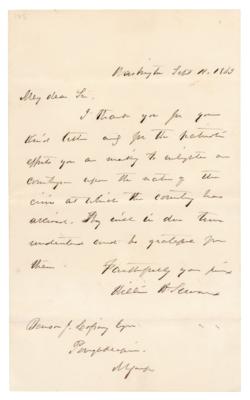 Washington Sept 11. 1863
My dear Sir,
I thank you for your
kind letter and for the patriotic
efforts you are making to enlighten our
countrymen upon the nature of the
crisis at which the country has
arrived. They will in due time
understand and be grateful for
them.
Faithfully your friend
William H Seward
Benson J. Lossing Esqr
Poughkeepsie